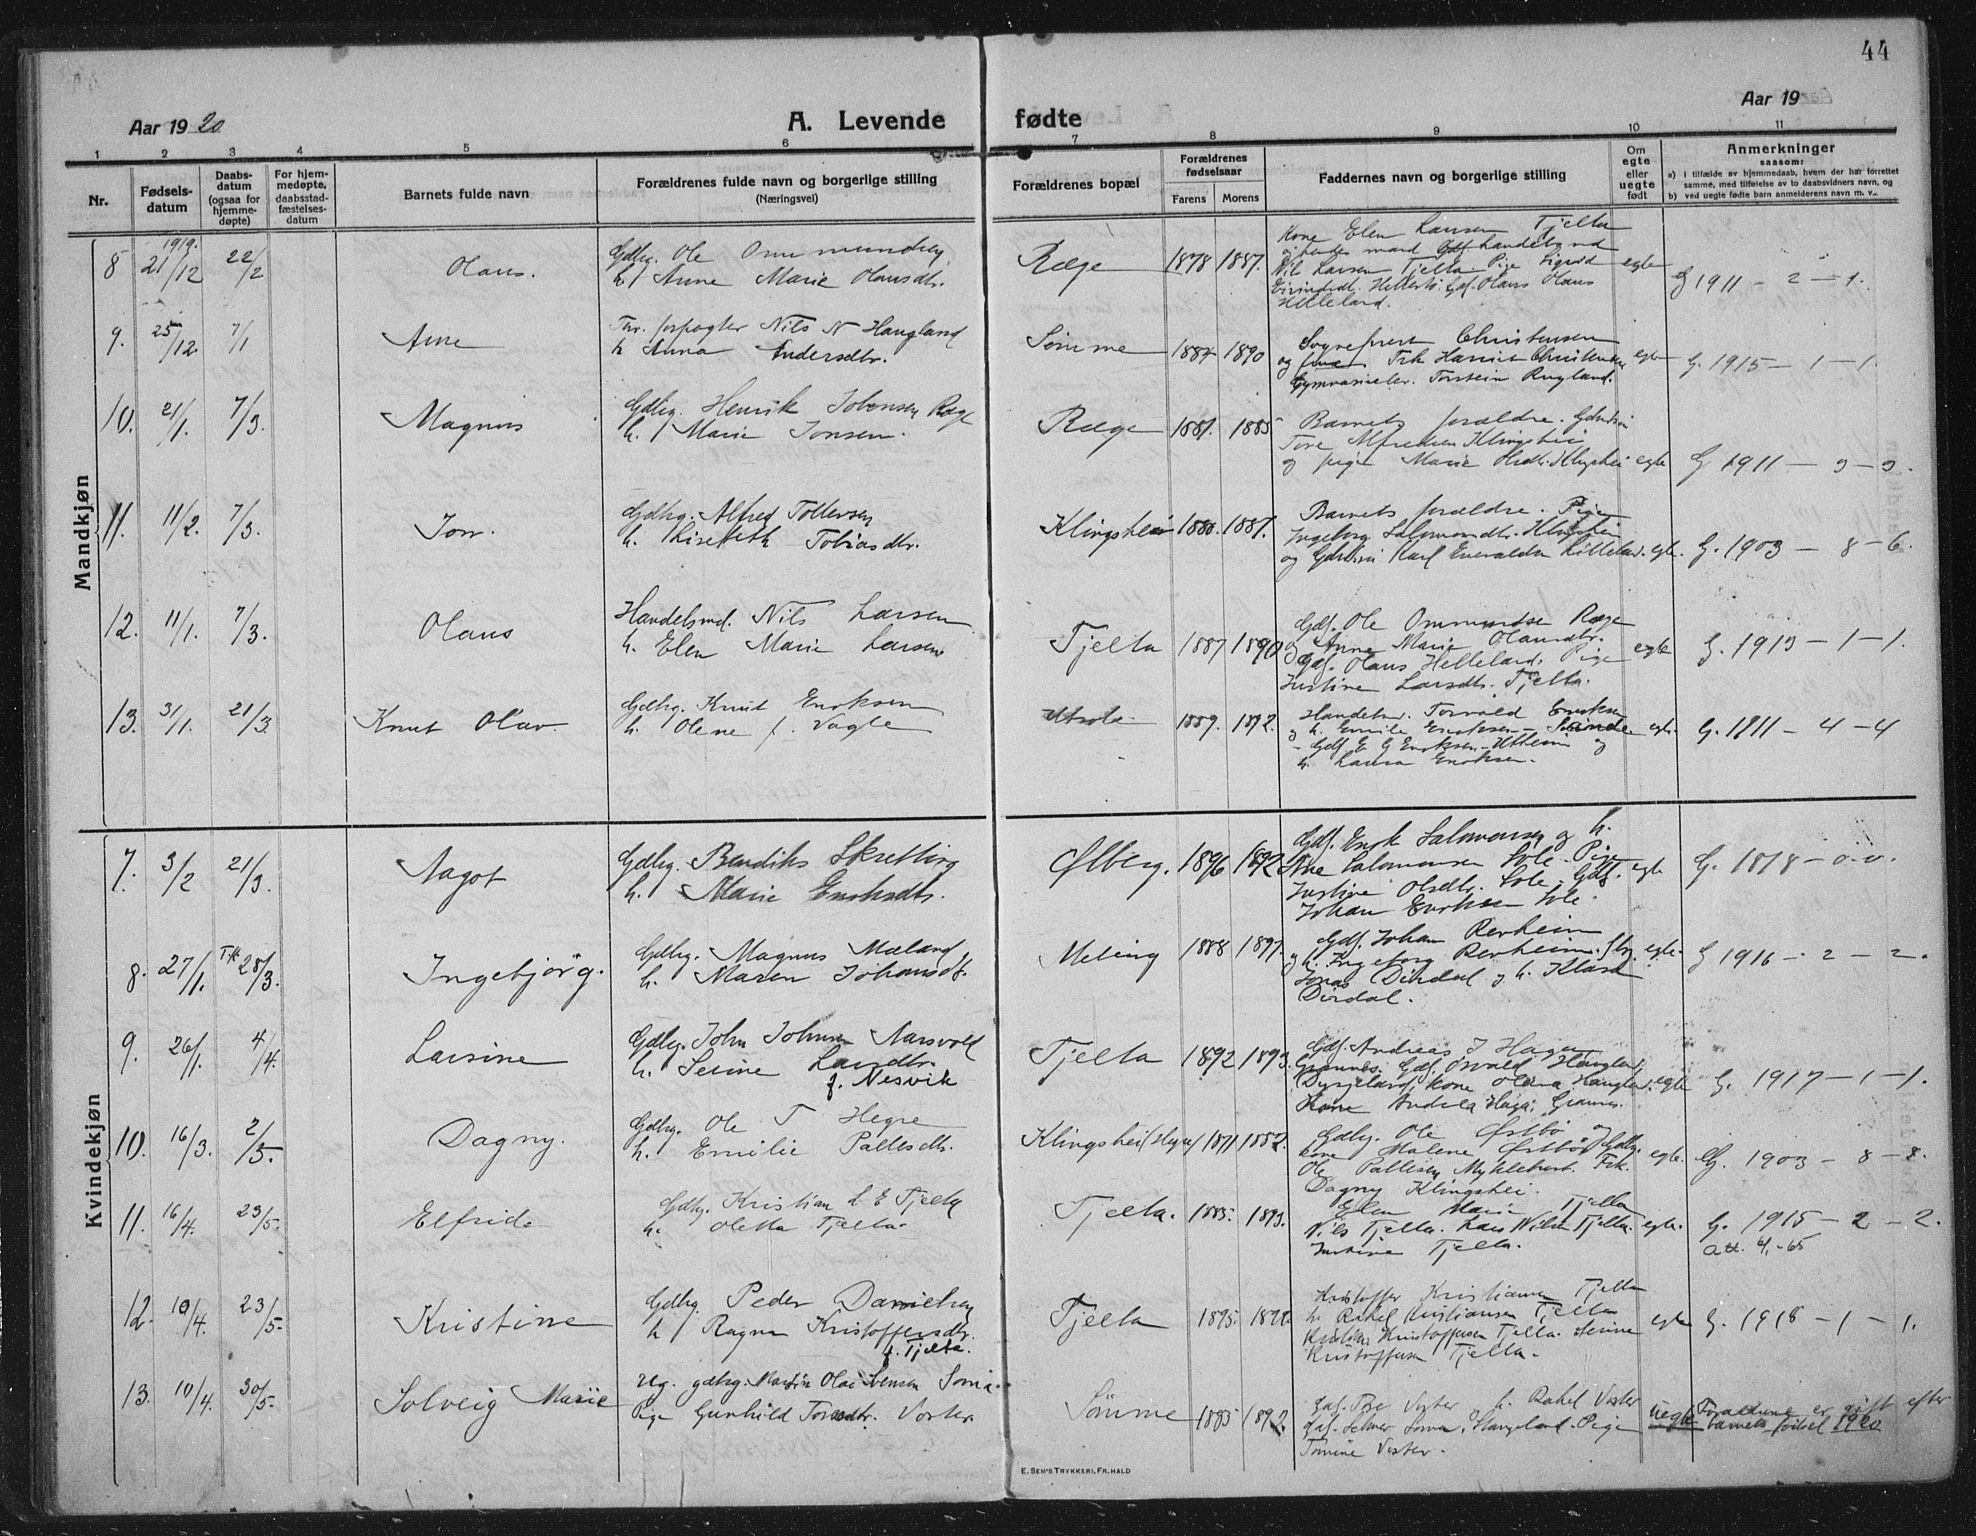 44
Aar 1920
A. Levende
fødte
Aar 19
1 2 3 4 5 6 7 8 9 10 11
Nr.
Fødsels-
datum
Daabs-
datum
(ogsaa for
hjemme-
døpte)
For hjem-
medøpte,
daabsstad-
fæstelses-
datum
Barnets fulde navn
Forældrenes fulde navn og borgerlige stilling
(Næringsvei)
Forældrenes bopæl
Forældrenes
fødselsaar
Farens Morens
Faddernes navn og borgerlige stilling
Om
egte
eller
uegte
født
Anmerkninger
saasom:
a) i tilfælde av hjemmedaab, hvem der har forrettet
samme, med tilføielse av to daabsvidners navn, og
b) ved uegte fødte barn anmelderens navn m. v..
Mandkjøn
8 1919. 21/12 22/2 Olaus.
Gdbr. Ole Ommundsen
h. Anne Marie Olausdtr.
Ræge 1878 1887.
Kone Elen Larsen Tjelta
og hendes mand handelsmd
Nils Larsen Tjelta Pige Sigrid
Gdf. Olaus Olaus
Helleland.
egte G 1911 - 2 - 1.
9. 25/12. 7/1 Arne
Nils N Haugland
h Anna Andersdtr.
Sømme 1887 1890
Sogneprest Christensen
og frue Frk Harriet Christensen
Torstein Rugland.
egte G. 1915 - 1 - 1.
10. 21/1. 7/3. Magnus
Gdbg. Henrik Jobensen Ræge
h. Marie Jonsen.
Ræge 1887. 1885
Barnets forældre.
Tore Alfredsen Klingshei
og pige Marie Klingshei
egte G 1911 - 3 - 3.
11. 11/2. 7/3. Jon.
Gdbg. Alfred Tollevsen
h. Lisebeth Tobiasdtr.
Klingshei 1880. 1887.
Barnets forældre. Pige
Ingeborg Salomondtr. Klingshei
og Karl
egte. G. 1903 - 8 - 6.
12. 11/1. 7/3. Olaus
Handelsmd. Nils Larsen
h. Elen Marie Larsen
Tjelta 1887 1890
Gdf. Ole Ommundse Ræge
og Anne Marie Olausdtr.
Gdf. Olaus Helleland. Pige
Justine Larsdtr. Tjelta.
egte G. 1913 - 1 - 1.
13. 31/1. 21/3. Knut Olav.
Gdbg. Knut Enoksen
h. Olene f. Vagle
Utsola 1889. 1892.
Torvald Enoksen
og h. Emilie Enoksen - Sunde
- Gdf. E G Enoksen - Utheim og
h. Laura Enoksen.
egte. G. 1811 - 4 - 4
Kvindekjøn
7. 3/2 21/3. Aagot
Gdbg. Bendiks Skretting
h. Marie Enoksdtr.
Ølberg. 1896 1892
Gdf. Enok Salomonsen og h.
Ane Salomonsen Sole. Pige
Justine Olsdtr. Sole. Gdf.
Johan Enoksen Sole.
egte G. 1818 - 0. 0.
8. 27/1. 28/3. Ingebjørg.
Gdbg. Magnus Mæland
h. Maren Johansdt.
Meling 1888 1897.
Gdf. Johan Revheim
og h. Ingeborg Revheim. Gbr.
Jonas Dirdal og h. Klara
Dirdal.
egte. G 1916 - 2 - 2.
9. 26/1. 4/4. Larsine
Gdbg. John Johnsen Aarsvold
h. Serine Larsdtr.
f. Nesvik
Tjelta 1892 1893.
Gdf. Andreas J Haga,
Grannes. Gdf. Osvald Haugland,
Dysjeland, kone Olena Haugland.
Kone Andrea Haga, Grannes.
egte G. 1917 - 1 - 1.
10. 16/3. 2/5. Dagny.
Gdbg. Ole T Hegre
h. Emilie Pallesdtr.
Klingshei 1871 1882.
Gdbg. Ole Østbø og
kone Malene Østbø, Gdbg.
Ole Pallesen Myklebust. Frk.
Dagny Klingshei.
egte. G. 1903 - 8 - 8.
11. 16/4. 23/5. Elfride
Gdbg. Kristian L E Tjelta
h. Oletta Tjelta.
Tjelta. 1885. 1893.
Elen Marie Tjelta
Nils Tjelta. Lars Nilsen Tjelta.
Justine Tjelta.
egte. G. 1915 - 2 - 2.
att. 4/1-65
12. 10/4. 23/5. Kristine
Gdbg. Peder Danielsen
h Ragna Kristoffersdtr.
f. Tjelta.
Tjelta 1895. 1892
Kristoffer Kristiansen Tjelta
h. Rakel Kristiansen Tjelta
Kristian Kristoffersen Tjelta. Serine
Kristoffersen Tjelta.
egte G. 1918 - 1 - 1.
13. 10/4. 30/5. Solveig Marie
ug. gdbg. Martin Olai Svensen Søma.
Pige Gunhild Tonesdtr. Vorter.
Sømme 1895 1892.
Gdf. h. Rakel Vister
Gdf. Selmer Søma, Stangeland. Pige
Tomine Vister.
uegte Forældrene er gift efter
barnets fødsel 1920
E. SEM'S TRYKKERI, FR. HALD